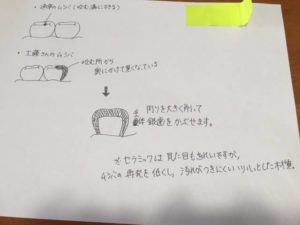 ・通常のムシバ(咬む溝にできる)
・工藤さんのムシバ
咬む所から
奥にかけて黒くなっている
周りを大きく削って
全体 銀歯をかぶせます。
※セラミックは見た目もきれいですが、
ムシバの再発を低くし、汚れがつきにくいツルっとした材種。